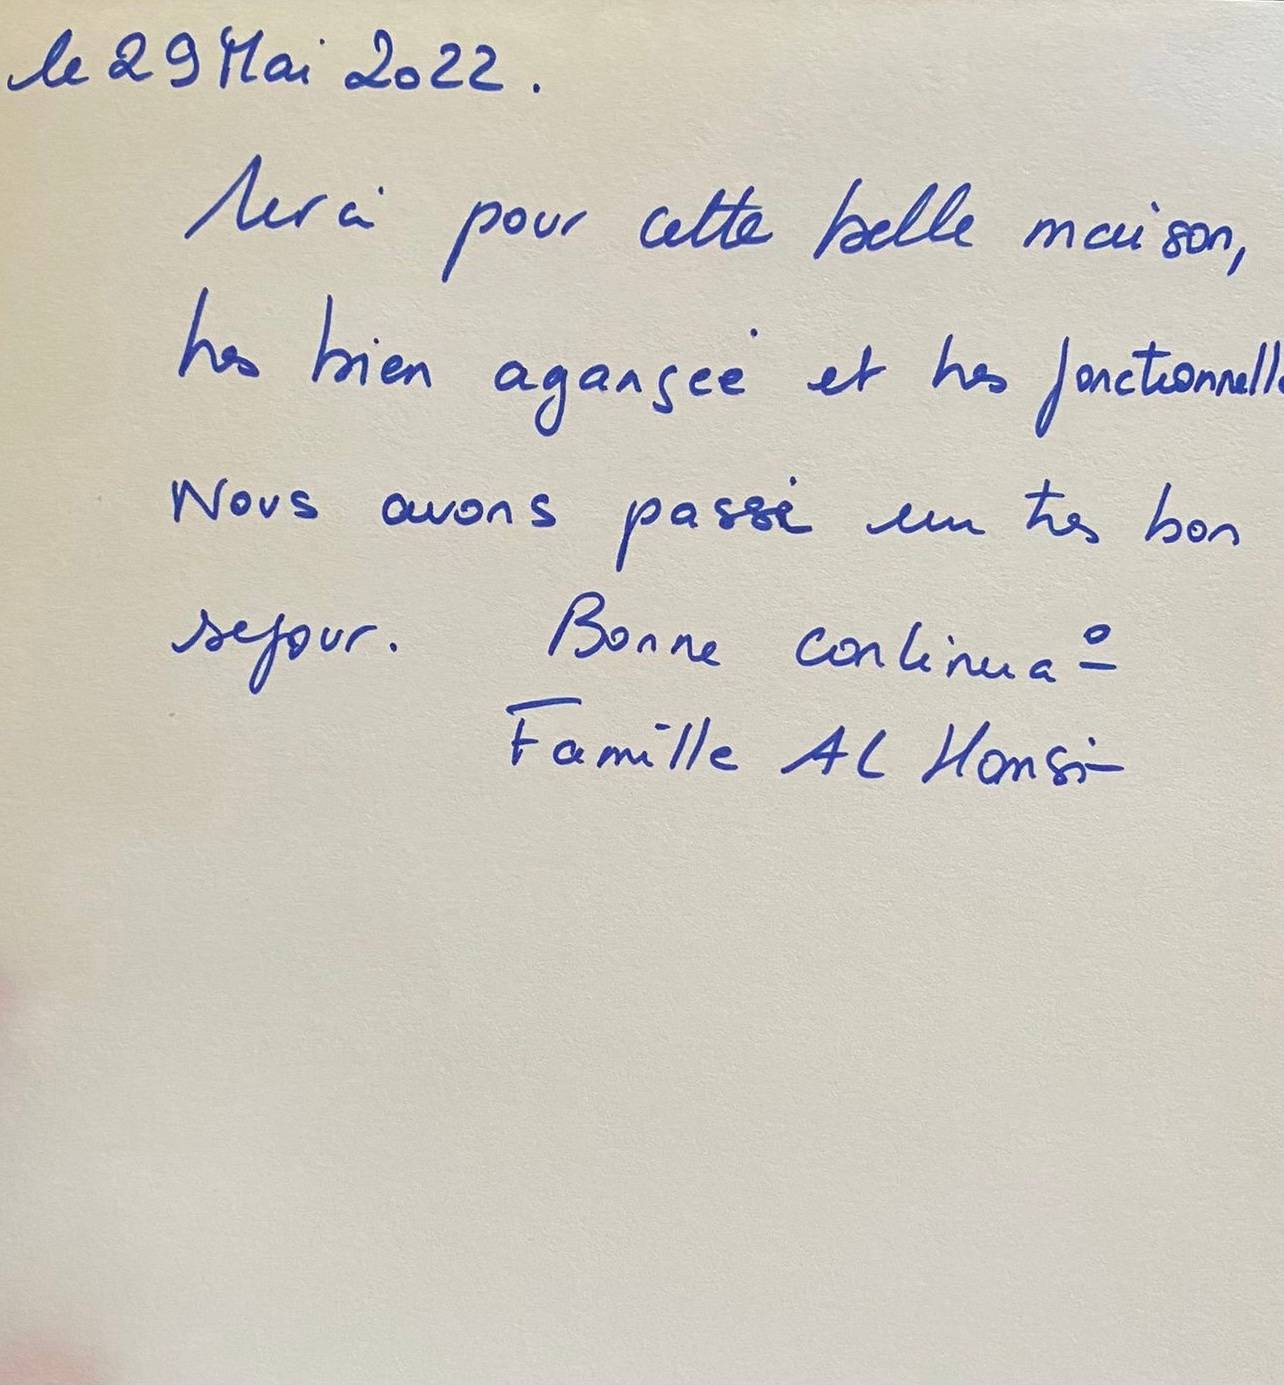 le 29 Mai 2022.
Merci pour cette belle maison,
très bien agançée et très fonctionnelle
Nous avons passé un très bon
sejour. Bonne continua°
Famille AL Homsi